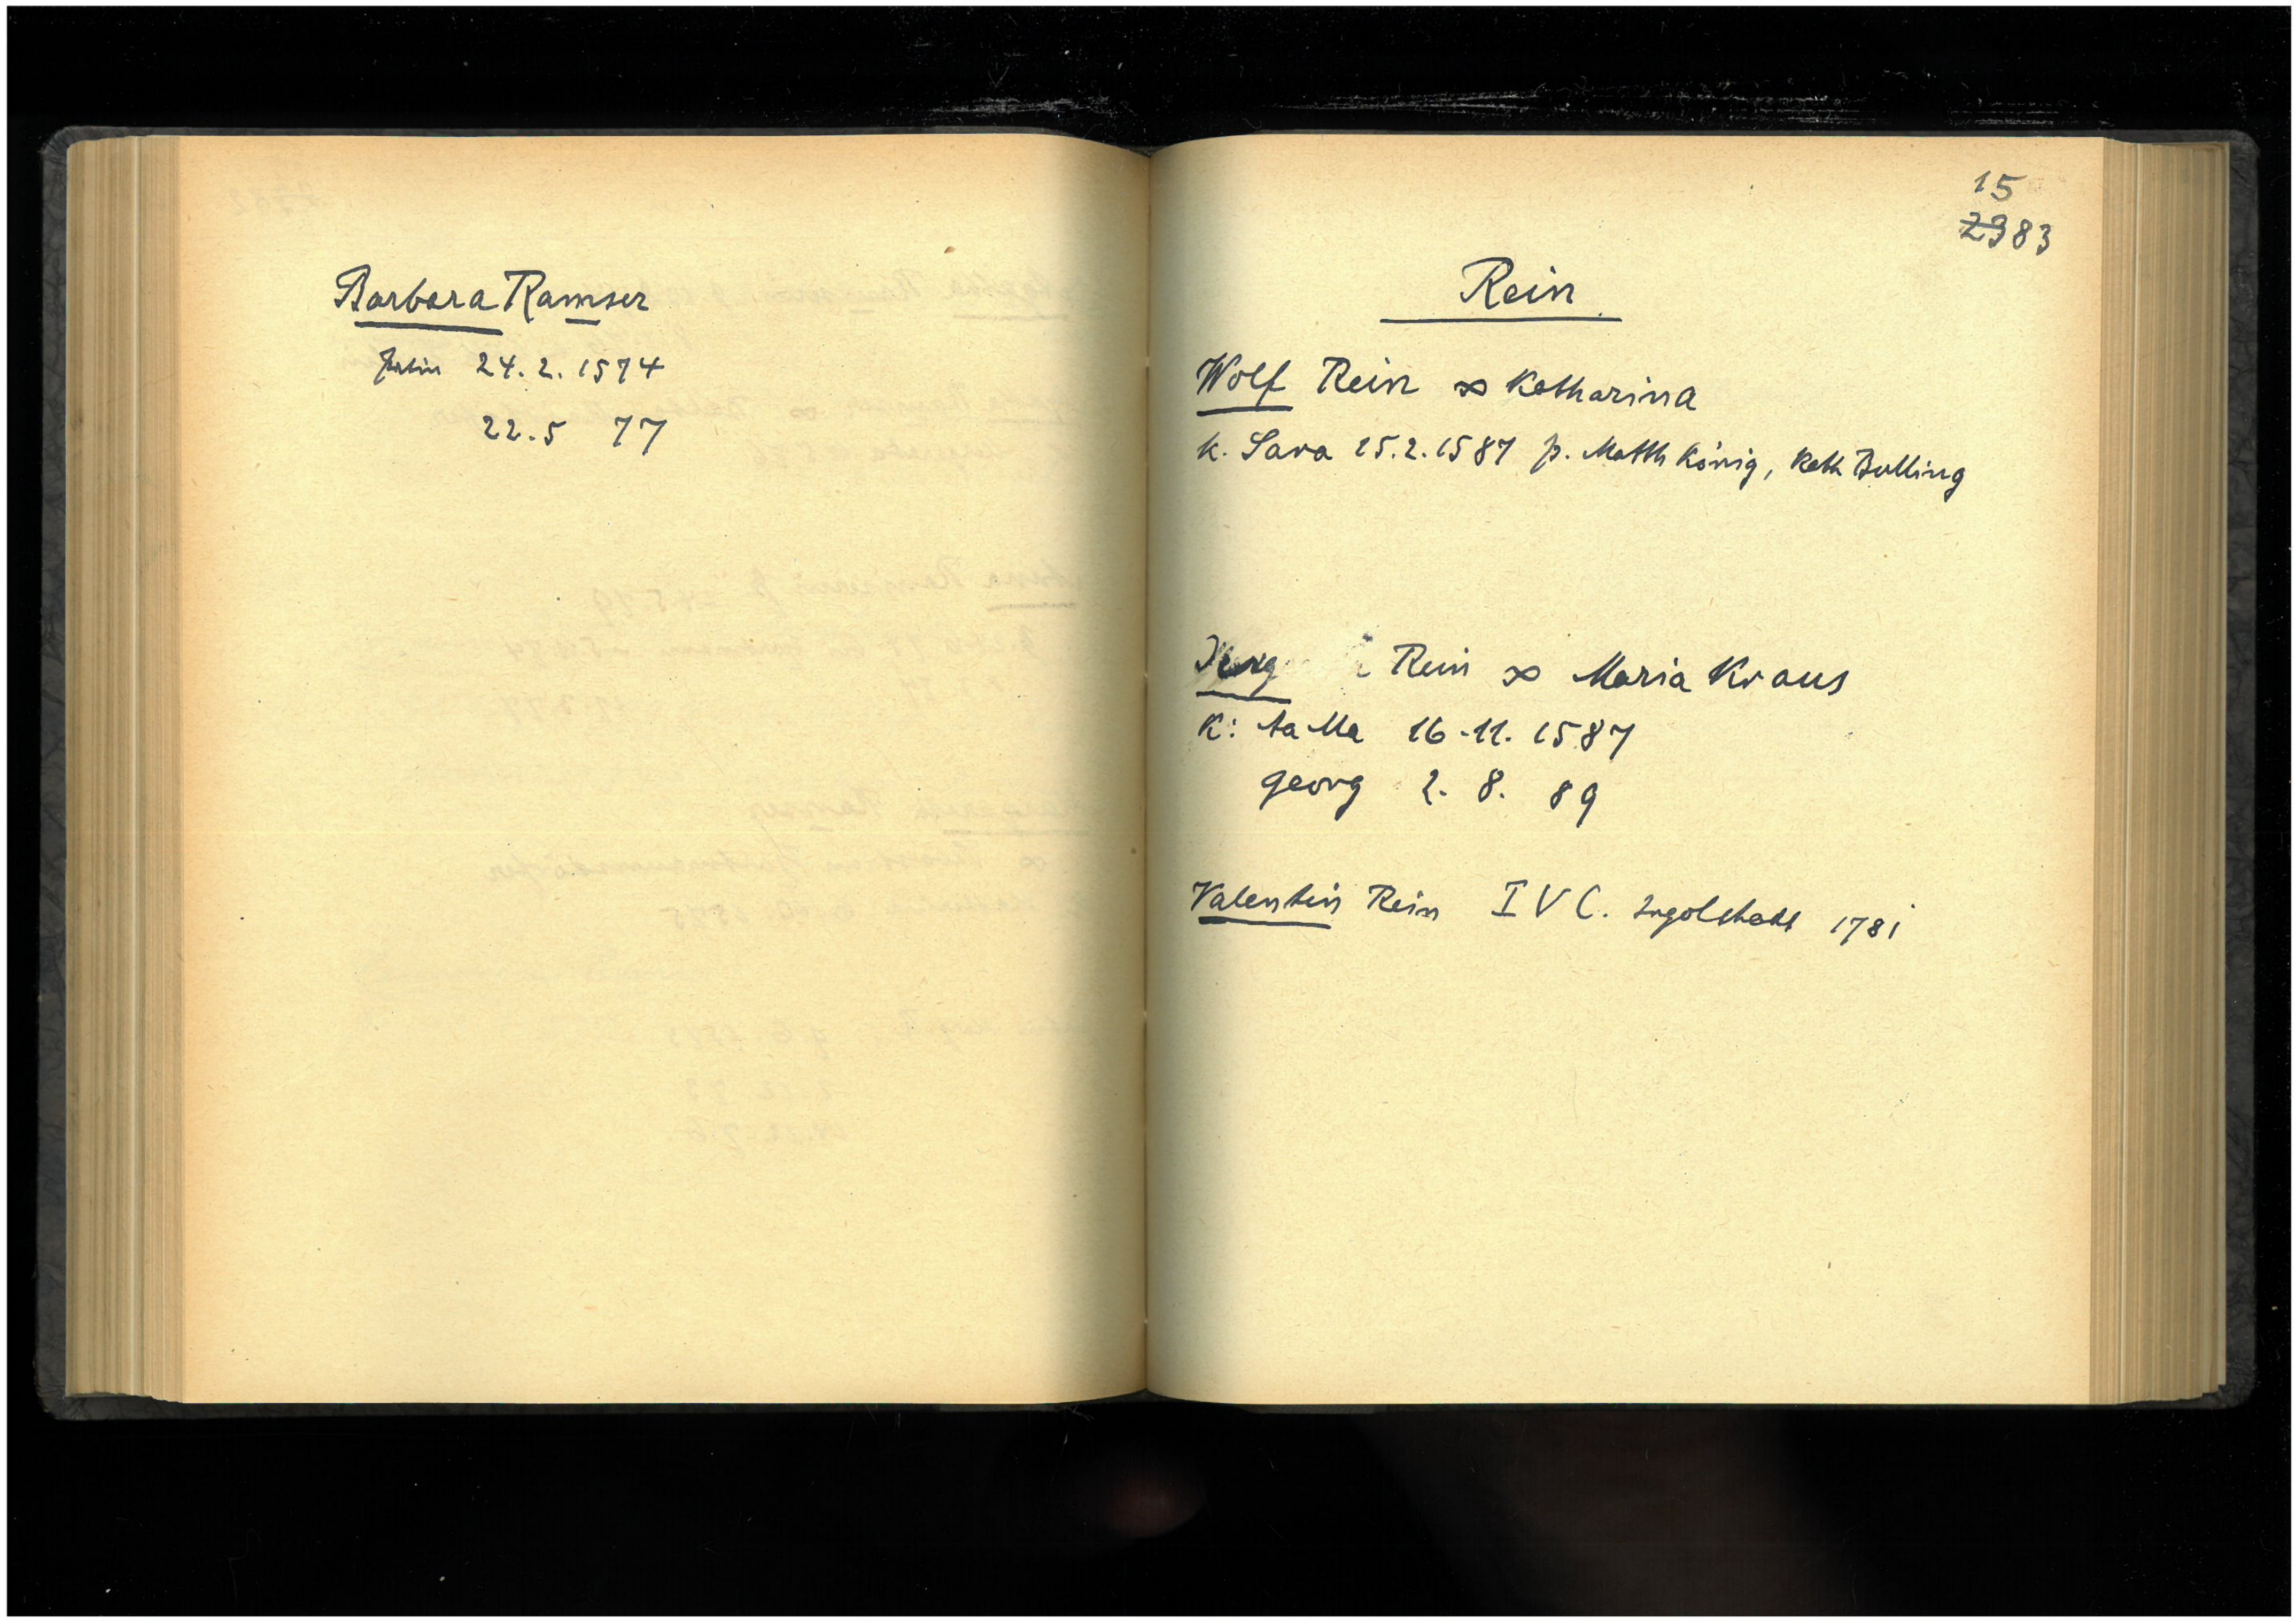 Barbara Ramser
Patin 24.2.1574
22.5 77
15
2383
Rein
Wolf Rein ∞ Katharina
K. Sara 25.2.1587 p. Matth König, Kath Bulling
Rein ∞ Maria Kraus
K: 16.11.1587
Georg 2. 8. 89
Valentin Rein I V C. Ingolstadt 1781